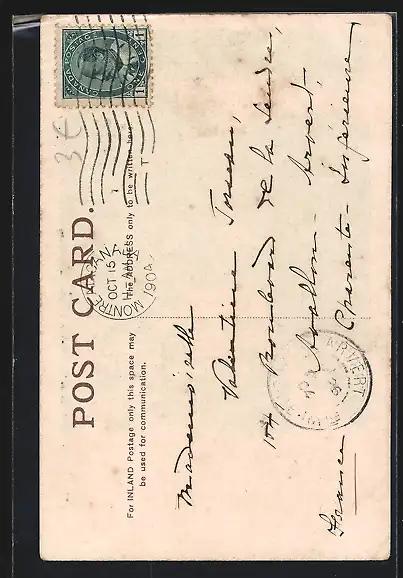 CANADA POSTAGE
ONE CENT
3€
POST CARD.
MONTREAL CANADA
OCT 15
1904
For INLAND Postage only this space may
be used for communication.
The ADDRESS only to be written here
Mademoiselle
Valentine
104 Boulevard de la
Avallon - Arvert,
Charente - Inférieure
France
ARVERT